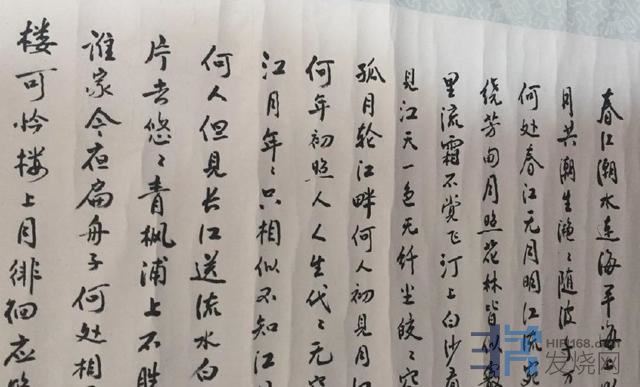 春江潮水连海平海上
月共潮生滟〻随波千
何处春江无月明江流宛
绕芳甸月照花林皆似霰
里流霜不觉飞汀上白沙看
见江天一色无纤尘皎〻空
孤月轮江畔何人初见月江
何年初照人人生代〻无穷
江月年〻只相似不知江
何人但见长江送流水白
片去悠〻青枫浦上不胜
谁家今夜扁舟子何处相
楼可怜楼上月徘徊应
HIFI168.com
发烧网